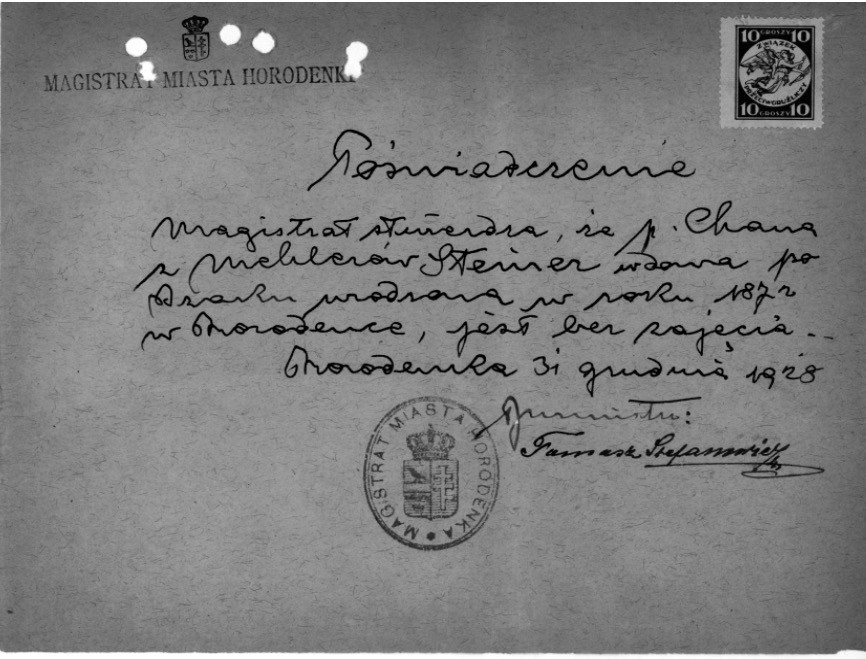 MAGISTRAT MIASTA HORODENKI
10 GROSZY 10
ZWIĄZEK
PRZECIWGRUŹLICZY
10 GROSZY 10
Poświadczenie
Magistrat stwierdza, że p. Chana
z Mehlerów Steiner wdowa po
urodzona w roku 1872
w Horodence, jest bez zajęcia.
Horodenka 31 grudnia 1928
Burmistrz:
Tomasz Stefanowicz
MAGISTRAT MIASTA HORODENKA